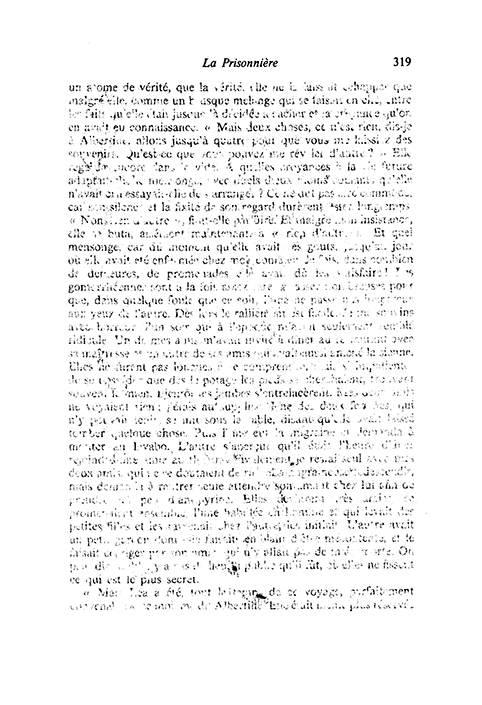 La Prisonnière 319
un atome de vérité, que la vérité, elle ne laissait échapper que
malgré elle, comme un brusque mélange qui se faisait en elle, entre
les faits qu'elle était jusque là décidée à cacher et la croyance qu'on
en avait eu connaissance. « Mais deux choses, ce n'est rien, dis-je
à Albertine, allons jusqu'à quatre pour que vous me laissiez des
souvenirs. Qu'est-ce que vous pouvez me révéler d'autre ? » Elle
encore dans le vide. A quelles croyances à la vie future
le mensonge, avec quels dieux moins qu'elle
n'avait cru essayait-elle de s'arranger ? Ce ne dut pas être commode,
car son silence et la fixité de son regard durèrent assez longtemps.
« Non, rien d'autre », finit-elle par dire. Et malgré mon insistance,
elle se buta, aisément maintenant, à « rien d'autre ». Et quel
mensonge, car du moment qu'elle avait ces goûts, jusqu'au jour
où elle avait été enfermée chez moi, combien de fois, dans combien
de demeures, de promenades elle avait dû les satisfaire ! Les
gomorrhéennes sont à la fois assez pour
que, dans quelque foule que ce soit, l'une ne passe pas inaperçue
aux yeux de l'autre. Dès lors le ralliement est facile. Je me souvins
avec horreur d'un soir qui à l'époque m'avait seulement semblé
ridicule. Un de mes amis m'avait invité à dîner au restaurant avec
sa maîtresse et un autre de ses amis qui avait aussi amené la sienne.
Elles ne furent pas longues à se comprendre,
que dès le potage les pieds se cherchaient, trouvant
souvent le mien. Bientôt les jambes s'entrelacèrent. Mes deux amis
ne voyaient rien ; j'étais au supplice. Une des deux femmes, qui
n'y pouvait tenir, se mit sous la table, disant qu'elle avait laissé
tomber quelque chose. Puis l'une eut la migraine et demanda à
monter au lavabo. L'autre s'aperçut qu'il était l'heure d'aller
rejoindre une amie au théâtre. Finalement je restai seul avec mes
deux amis, qui ne se doutaient de rien. La migraineuse redescendit,
mais demanda à rentrer seule attendre son amant chez lui afin de
prendre un peu d'antipyrine. Elles devinrent très amies, se
promenaient ensemble, l'une habillée en homme et qui levait des
petites filles et les ramenait chez l'autre, les initiait. L'autre avait
un petit garçon dont elle faisait semblant d'être mécontente, et le
faisait corriger par son amie, qui n'y allait pas de main morte. On
peut dire qu'il n'y a pas de lieu, si public qu'il fût, où elles ne fissent
ce qui est le plus secret.
« Mais Léa a été, tout le temps de ce voyage, parfaitement
avec moi, me dit Albertine. Elle était même plus réservée